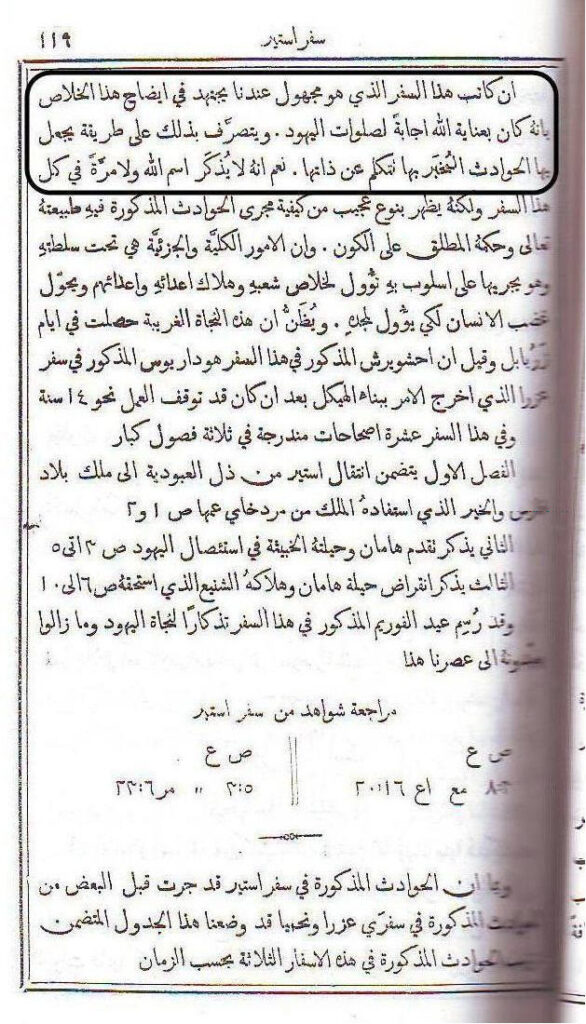 سفر استير ١١٩
ان كاتب هذا السفر الذي هو مجهول عندنا يجتهد في ايضاح هذا الخلاص
بانهُ كان بعناية الله اجابةً لصلوات اليهود . ويتصرَّف بذلك على طريقة يجعل
بها الحوادث المُخبَر بها تتكلم عن ذاتها . نعم انهُ لا يُذكَر اسم الله ولا مرَّةً في كل
هذا السفر ولكنهُ يظهر بنوع عجيب من كيفية مجرى الحوادث المذكورة فيهِ طبيعتهُ
تعالى وحكمهُ المطلق على الكون . وان الامور الكليَّة والجزئيَّة هي تحت سلطتهِ
وهو يجريها على اسلوب بهِ تؤُول لخلاص شعبهِ وهلاك اعدائهِ واعدائهم ويحوّل
غضب الانسان لكي يؤُول لمجدهِ . ويُظَنُّ ان هذه النجاة الغريبة حصلت في ايام
زَرُبابل وقيل ان احشويرش المذكور في هذا السفر هو داريوس المذكور في سفر
عزرا الذي اخرج الامر ببناء الهيكل بعد ان كان قد توقف العمل نحو ١٤ سنة
وفي هذا السفر عشرة اصحاحات مندرجة في ثلاثة فصول كبار
الفصل الاول يتضمن انتقال استير من ذل العبودية الى ملك بلاد
فارس والخير الذي استفادهُ الملك من مردخاي عمها ص ١ و٢
الثاني يذكر تقدم هامان وحيلتهُ الخبيثة في استئصال اليهود ص ٣ الى ٥
الثالث يذكر انقراض حيلة هامان وهلاكهُ الشنيع الذي استحقهُ ص ٦ الى ١٠
وقد رُسِم عيد الفوريم المذكور في هذا السفر تذكارًا لنجاة اليهود وما زالوا
الى عصرنا هذا
مراجعة شواهد من سفر استير
ص ع ص ع
مع اع ١٦:‏٢٠ ٥:‏٣ " مر ٦:‏٢٣
وبما ان الحوادث المذكورة في سفر استير قد جرت قبل البعض من
الحوادث المذكورة في سفرَي عزرا ونحميا قد وضعنا هذا الجدول المتضمن
الحوادث المذكورة في هذه الاسفار الثلاثة بحسب الزمان